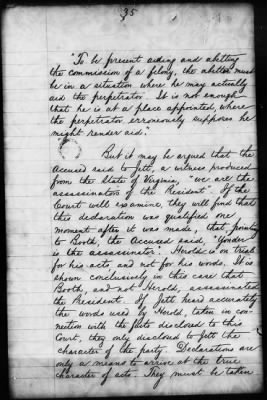 35
"To be present aiding and abetting
the commission of a felony, the abettor must
be in a situation where he may actually
aid the perpetrator. It is not enough
that he is at a place appointed, where
the perpetrator erroneously supposes he
might render aid."
But it may be argued that the
Accused said to Jett, a witness produced
from the State of Virginia, "we are the
assassinators of the President". If the
Court will examine, they will find that
this declaration was qualified one
moment after it was made, that, pointing
to Booth, the Accused said, "Yonder
is the assassinator. Herold is on trial
for his acts, and not for his words. It is
shown conclusively in this case that
Booth, and not Herold, assassinated
the President. If Jett heard accurately
the words used by Herold, taken in con-
nection with the facts disclosed to this
Court, they only disclosed to Jett the
character of the party. Declarations are
only a means to arrive at the true
character of acts. They must be taken